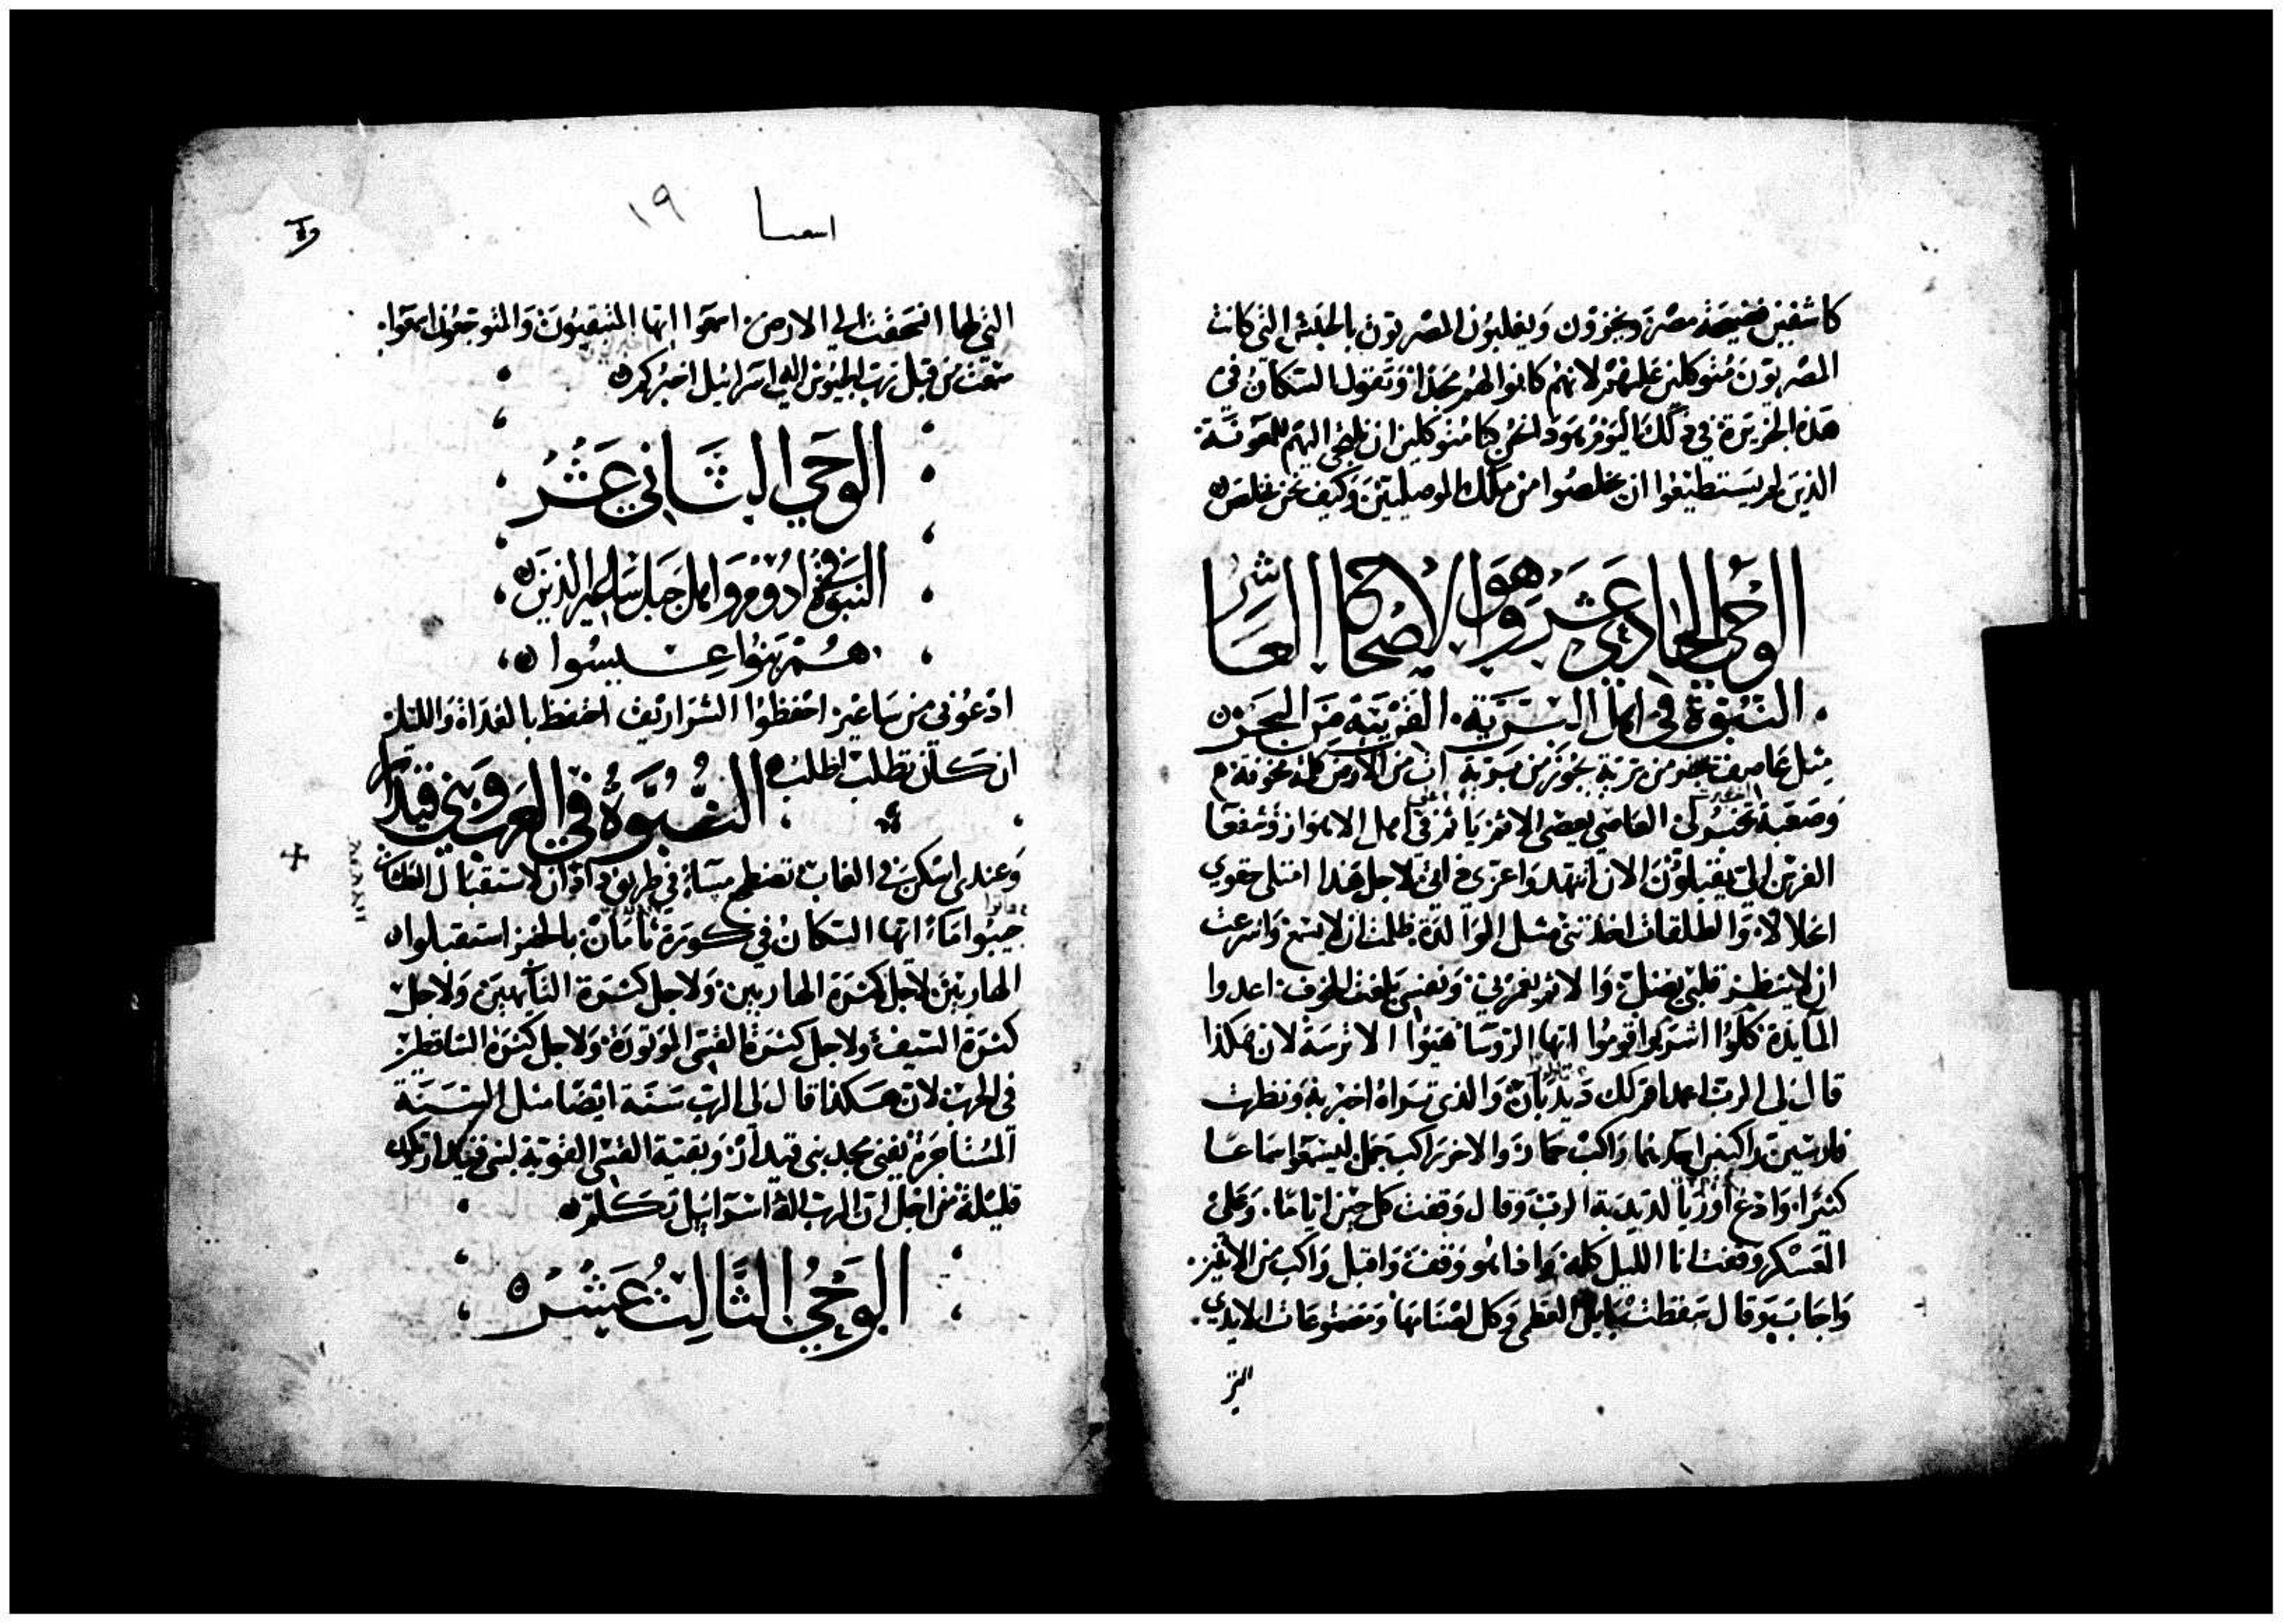 كاشفين فضيحة مصر ويخزون ويغلبون المصريون بالحبش التي كانت
المصريون متوكلين عليهم لانهم كانوا لهم مجدا وتقول السكان في
هذه الجزيرة في ذلك اليوم هوذا نحن كنا متوكلين ان نلتجي اليهم للمعونة
الذين لم يستطيعوا ان يخلصوا من ملك الموصليين وكيف نحن نخلص
الوحي الحادي عشر وهو الاصحاح العاشر
النبوة في اهل البرية القريبة من البحر
مثل عاصف من برية يجوز من برية ات من الارض كلة مخوفة
وصعبة العاصي يعصي الاثم ياثم في اهل الاهواز وشفعا
الفرس الي يقبلون الان اتنهد واعزي ذاتي لاجل هذا امتلي حقوي
انحلالا والطلقات اخذتني مثل الوالدة ظلمت ان لا اسمع واسرعت
ان لا ينظر قلبي يضل والاثم يغمرني ونفسي بلغت للخوف اعدوا
المايدة كلوا اشربوا قوموا ايها الروسا هيوا الاترسة لان هكذا
قال لي الرب امض اقم لك ديدبان والذي تراه اخبر به ونظرت
فارسين راكبين احدهما راكب حمار والاخر راكب جمل ليسمعوا سماعا
كثيرا وادع اوريا لديدبة الرب وقال وقفت كل حين اياما وعلي
العسكر وقفت انا الليل كلة واذا هو وقفت واقبل راكب من الاثنين
واجاب وقال سقطت بابل العظمي وكل اصنامها ومصنوعات الايدي
التي
اسعيا ١٩
التي لها انسحقت الي الارض اسمعوا ايها المتبقيون والمتوجعون اسمعوا
سمعت من قبل رب الجيوش اله اسرائيل اخبركم
الوحي الثاني عشر
النبوة في ادوم واهل جبل ساعير الذين
هم بنوا عيسوا
ادعوني من ساعير احفظوا الشراريف احفظ بالغداة والليل
ان كان تطلب اطلب النبوة في العرب وبني قيدار
وعندي اسكن في الغاب تضطجع مسا في طريق دادان لاستقبال العطاش
جيبوا ماء ايها السكان في كورة تامان بالخبز استقبلوا
الهاربين لاجل كثرة الهاربين ولاجل كثرة التايهين ولاجل
كثرة السيف ولاجل كثرة القسي الموتورة ولاجل كثرة الساقطين
في الحرب لان هكذا قال لي الرب سنة ايضا مثل السنة
المستاجرة يفني مجد بني قيدار وبقية القسي القوية لبني قيدار تكون
قليلة من اجل ان الرب اله اسرائيل تكلم
الوحي الثالث عشر